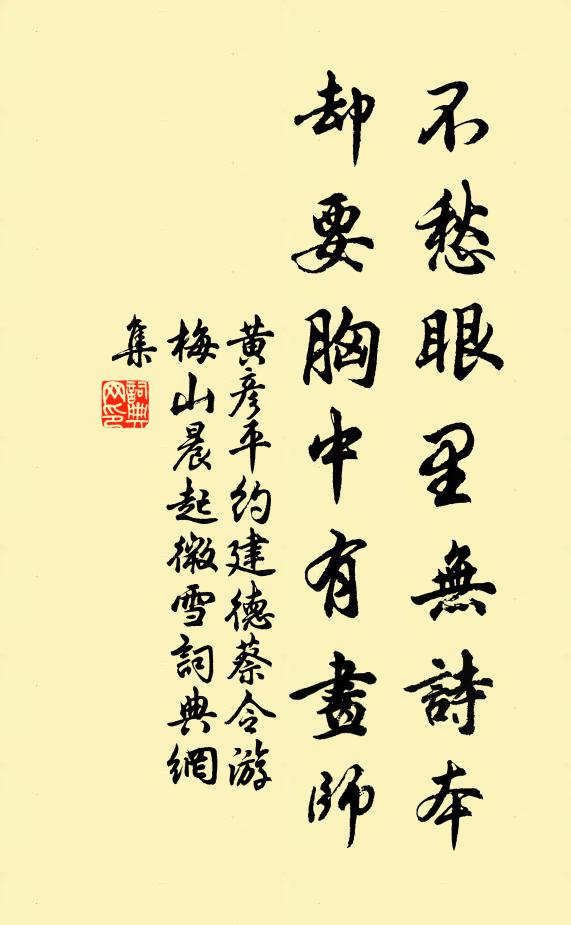 不愁眼里無詩本
却要胸中有畫師
黄彦平約建德蔡令游
梅山晨起微雪詞典網
集
詞典
网印